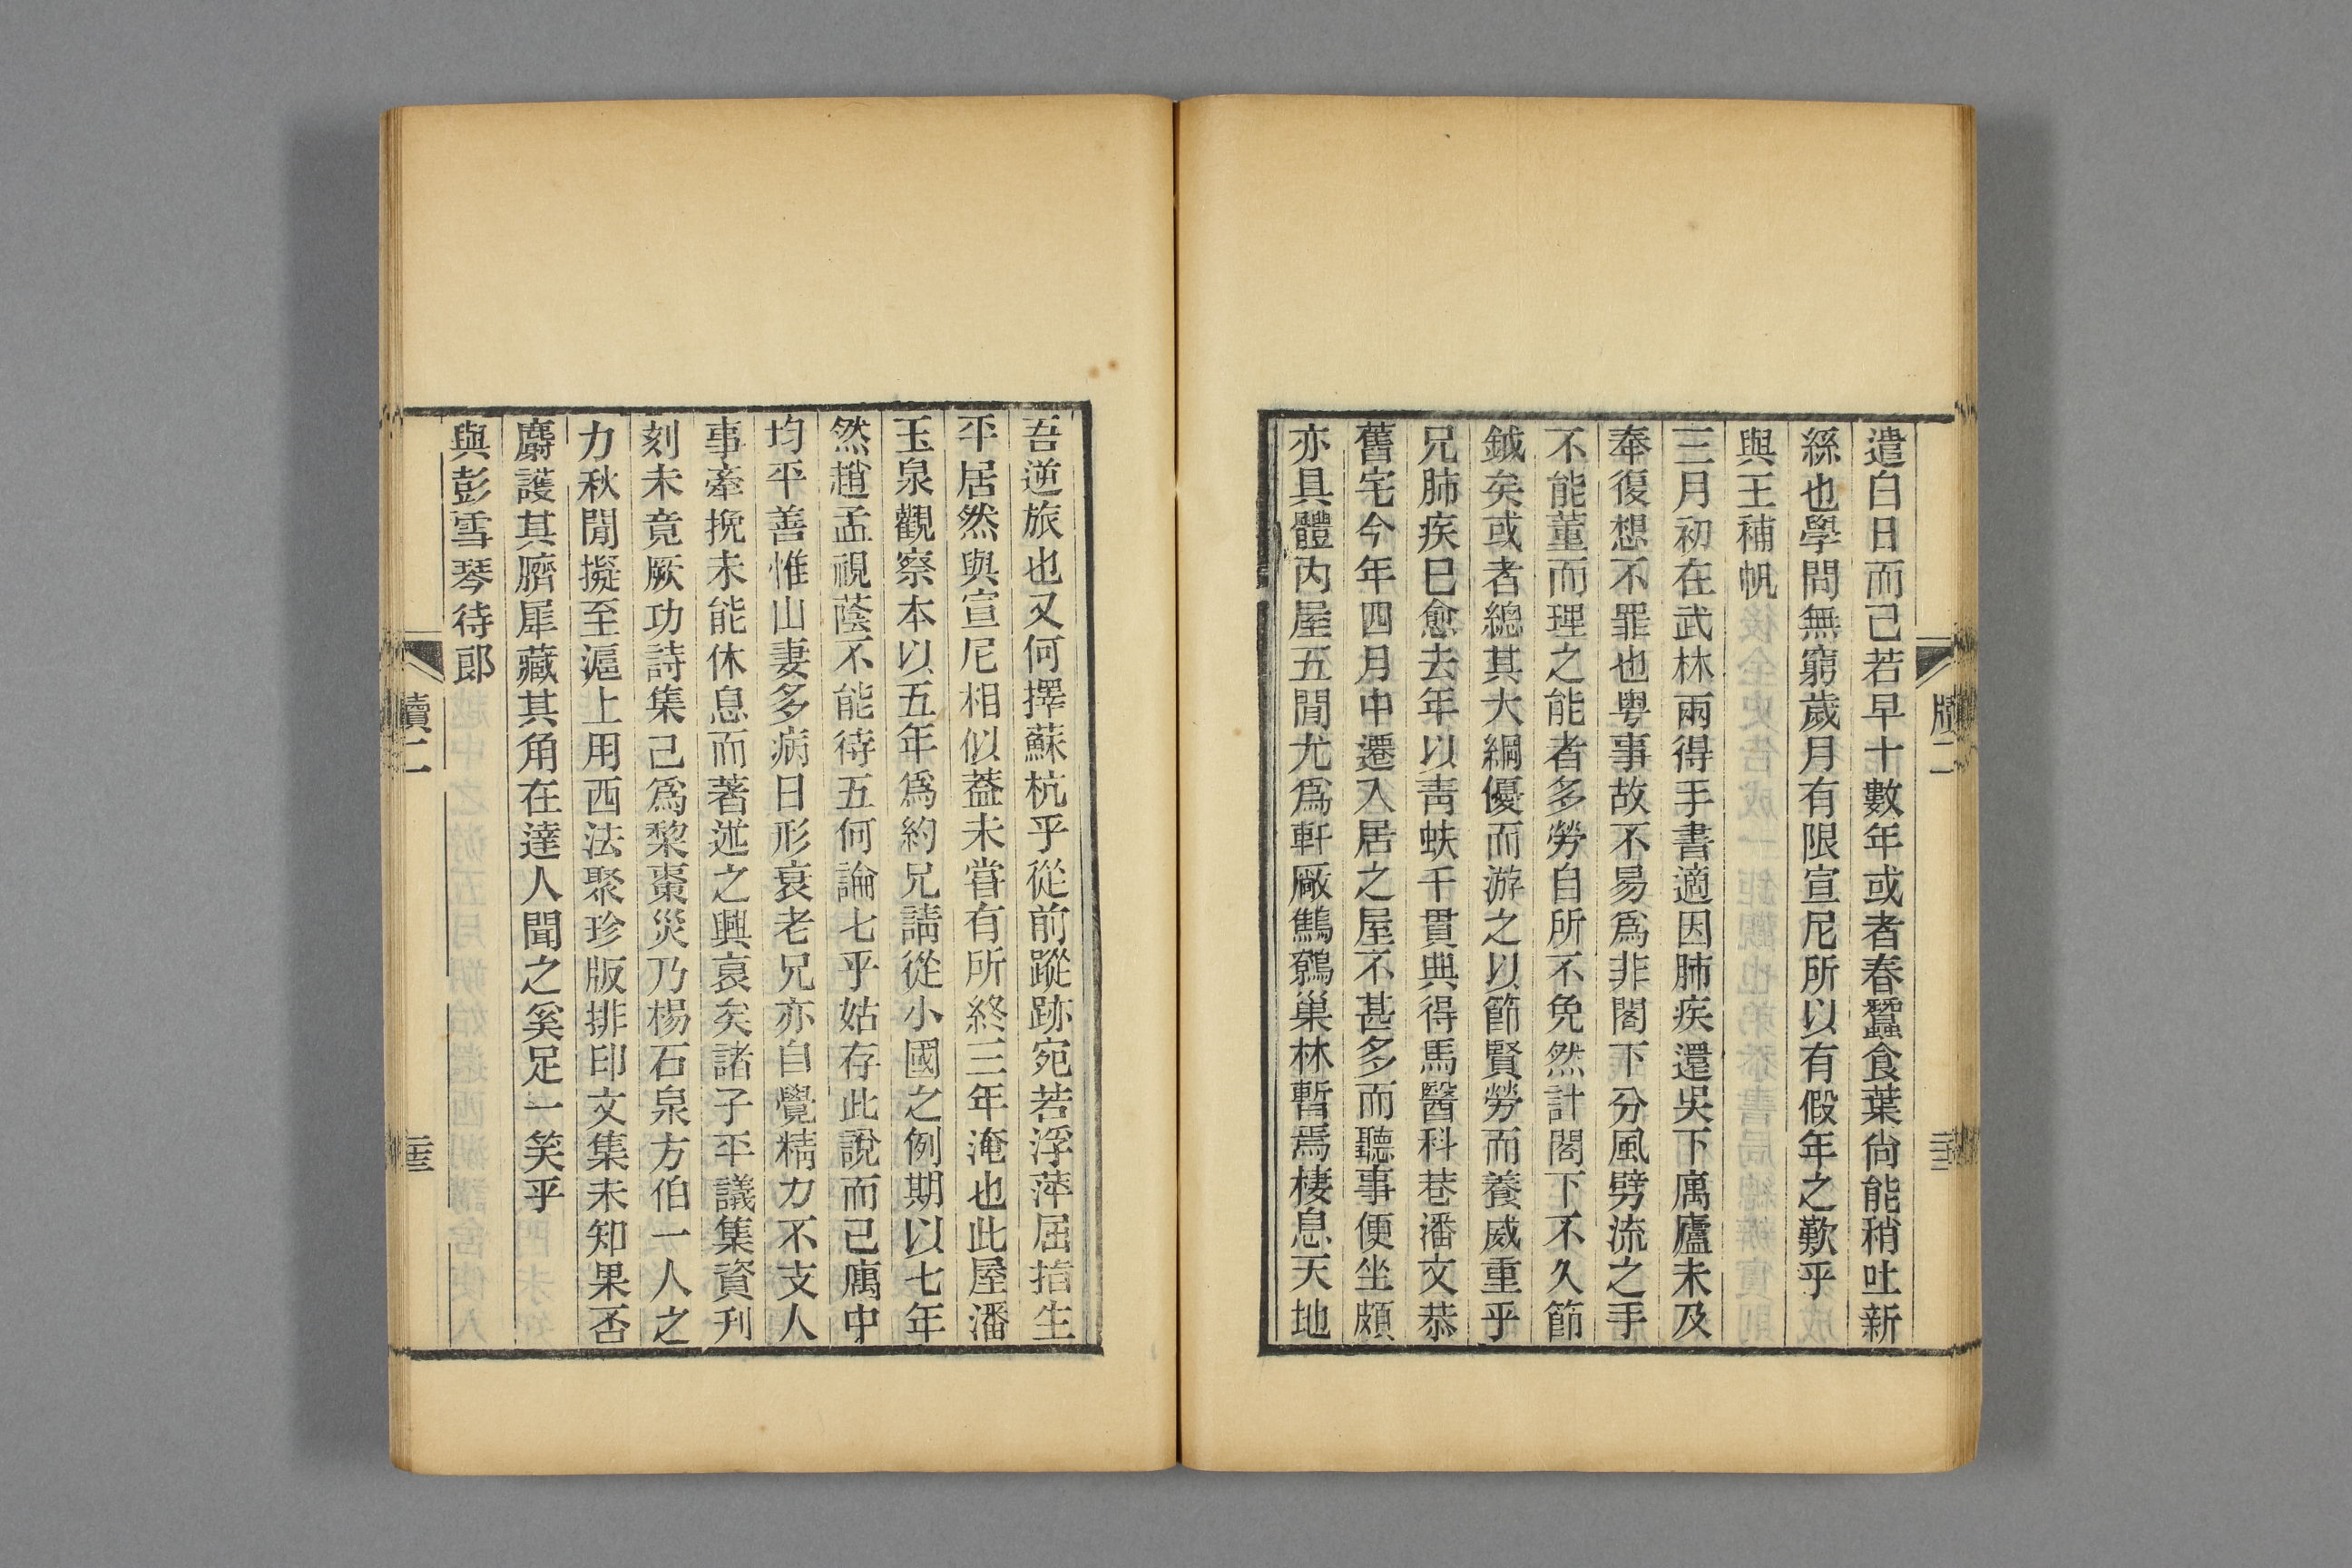 遣白日而己若早十數年或者春蠶食葉尙能稍吐新
絲也學問無窮歲月有限宣尼所以有假年之歎乎
與王補帆
三月初在武林兩得手書適因肺疾還吳下寓廬未及
奉復想不罪也粵事故不易爲非閣下分風劈流之手
不能董而理之能者多勞自所不免然計閣下不久節
鉞矣或者總其大綱優而游之以節賢勞而養威重乎
兄肺疾已愈去年以靑蚨千貫典得馬醫科巷潘文恭
舊宅今年四月中遷入居之屋不甚多而聽事便坐頗
亦具體內屋五閒尤爲軒厰鷦鷯巢林暫焉棲息天地
吾逆旅也又何擇蘇杭乎從前蹤跡宛若浮萍屈指生
平居然與宣尼相似葢未嘗有所終三年淹也此屋潘
玉泉觀察本以五年爲約兄請從小國之例期以七年
然趙孟視蔭不能待五何論七乎姑存此說而已寓中
均平善惟山妻多病日形衰老兄亦自覺精力不支人
事牽挽未能休息而著述之興衰矣諸子平議集資刋
刻未竟厥功詩集己爲棃棗災乃楊石泉方伯一人之
力秋閒擬至滬上用西法聚珍版排印文集未知果否
麝護其臍犀藏其角在達人聞之奚足一笑乎
與彭雪琴待郎
牘二